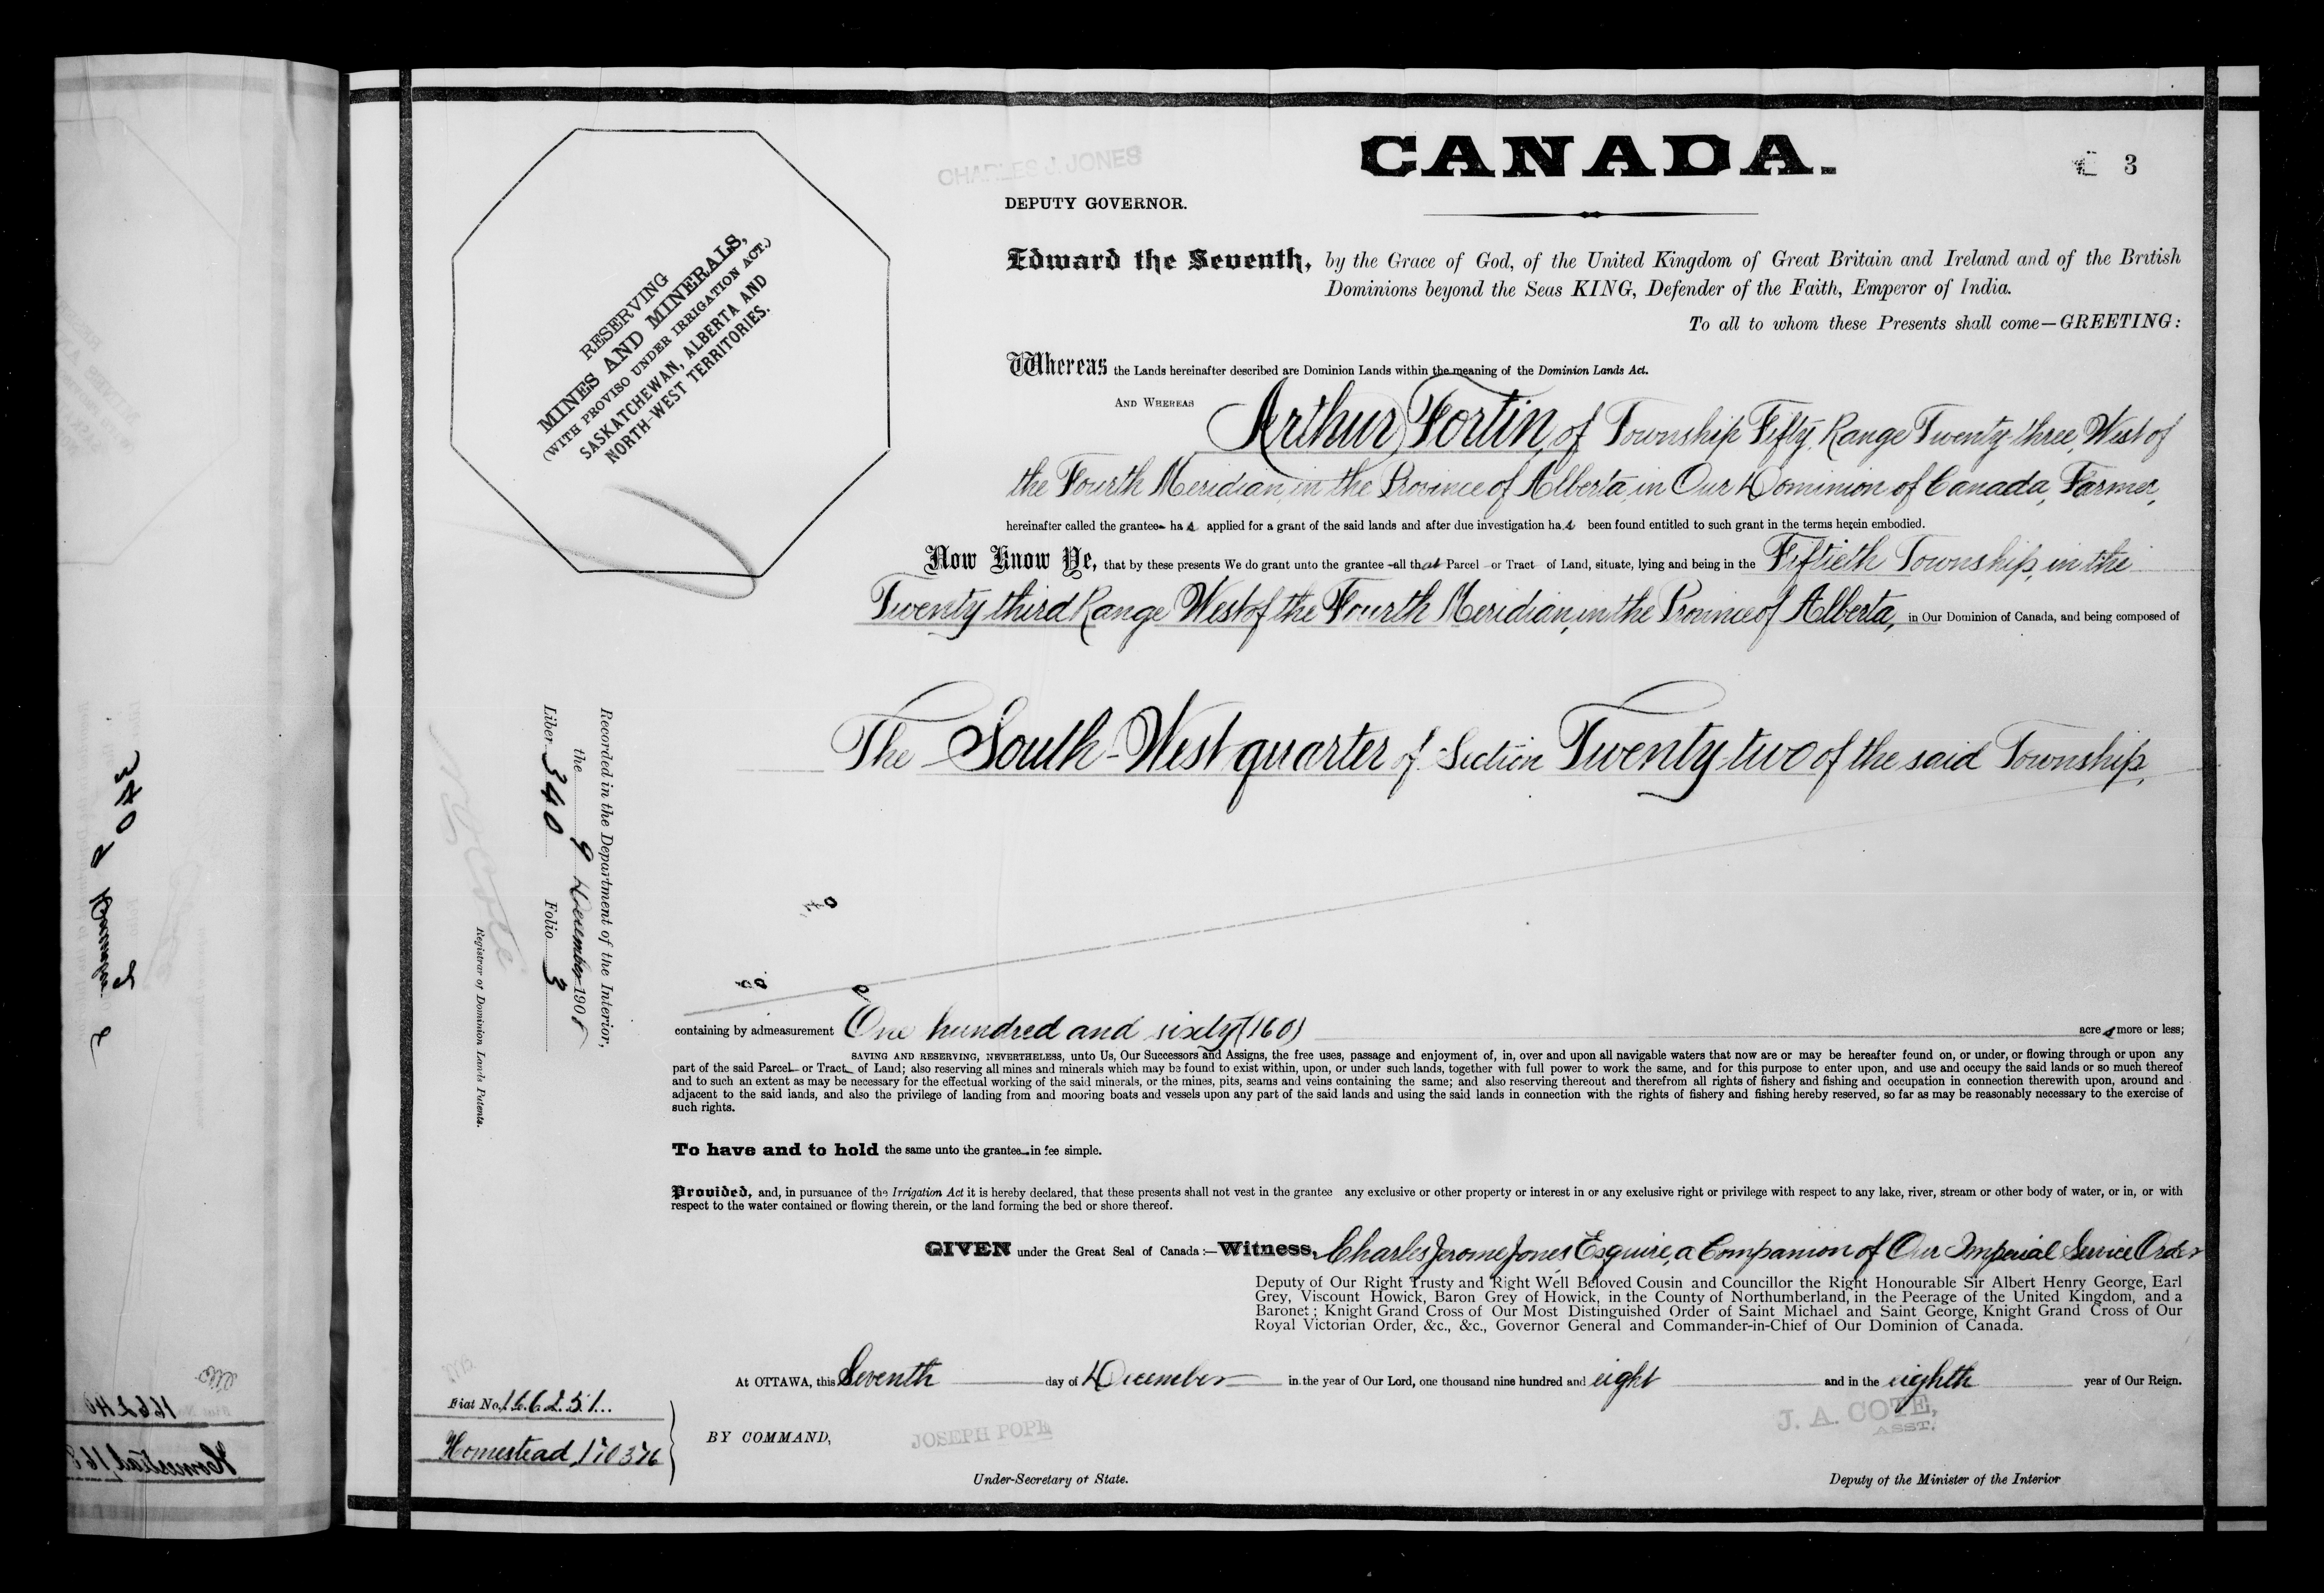 CANADA.
3
CHARLES J. JONES
DEPUTY GOVERNOR.
RESERVING
MINES AND MINERALS,
(WITH PROVISO UNDER IRRIGATION ACT.)
SASKATCHEWAN, ALBERTA AND
NORTH-WEST TERRITORIES.
Edward the Seventh, by the Grace of God, of the United Kingdom of Great Britain and Ireland and of the British
Dominions beyond the Seas KING, Defender of the Faith, Emperor of India.
To all to whom these Presents shall come—GREETING:
Whereas the Lands hereinafter described are Dominion Lands within the meaning of the Dominion Lands Act.
AND WHEREAS Arthur Fortin, of Township Fifty, Range Twenty-three, West of
the Fourth Meridian, in the Province of Alberta, in Our Dominion of Canada, Farmer,
hereinafter called the grantee has applied for a grant of the said lands and after due investigation has been found entitled to such grant in the terms herein embodied.
Now Know Ye, that by these presents We do grant unto the grantee all that Parcel or Tract of Land, situate, lying and being in the Fiftieth Township, in the
Twenty third Range West of the Fourth Meridian, in the Province of Alberta, in Our Dominion of Canada, and being composed of
The South-West quarter of Section Twenty-two of the said Township,
Recorded in the Department of the Interior,
the 9 December 1908
Liber 340 Folio 3
N O Coté
Registrar of Dominion Lands Patents.
containing by admeasurement One hundred and sixty (160) acres more or less;
SAVING AND RESERVING, NEVERTHELESS, unto Us, Our Successors and Assigns, the free uses, passage and enjoyment of, in, over and upon all navigable waters that now are or may be hereafter found on, or under, or flowing through or upon any
part of the said Parcel or Tract of Land; also reserving all mines and minerals which may be found to exist within, upon, or under such lands, together with full power to work the same, and for this purpose to enter upon, and use and occupy the said lands or so much thereof
and to such an extent as may be necessary for the effectual working of the said minerals, or the mines, pits, seams and veins containing the same; and also reserving thereout and therefrom all rights of fishery and fishing and occupation in connection therewith upon, around and
adjacent to the said lands, and also the privilege of landing from and mooring boats and vessels upon any part of the said lands and using the said lands in connection with the rights of fishery and fishing hereby reserved, so far as may be reasonably necessary to the exercise of
such rights.
To have and to hold the same unto the grantee in fee simple.
Provided, and, in pursuance of the Irrigation Act it is hereby declared, that these presents shall not vest in the grantee any exclusive or other property or interest in or any exclusive right or privilege with respect to any lake, river, stream or other body of water, or in, or with
respect to the water contained or flowing therein, or the land forming the bed or shore thereof.
GIVEN under the Great Seal of Canada:—Witness, Charles Jerome Jones Esquire, a Companion of Our Imperial Service Order
Deputy of Our Right Trusty and Right Well Beloved Cousin and Councillor the Right Honourable Sir Albert Henry George, Earl
Grey, Viscount Howick, Baron Grey of Howick, in the County of Northumberland, in the Peerage of the United Kingdom, and a
Baronet; Knight Grand Cross of Our Most Distinguished Order of Saint Michael and Saint George, Knight Grand Cross of Our
Royal Victorian Order, &c., &c., Governor General and Commander-in-Chief of Our Dominion of Canada.
At OTTAWA, this Seventh day of December in the year of Our Lord, one thousand nine hundred and eight and in the eighth year of Our Reign.
Fiat No. 166251
Homestead 170376
BY COMMAND,
JOSEPH POPE
Under-Secretary of State.
J. A. COTE,
ASST.
Deputy of the Minister of the Interior